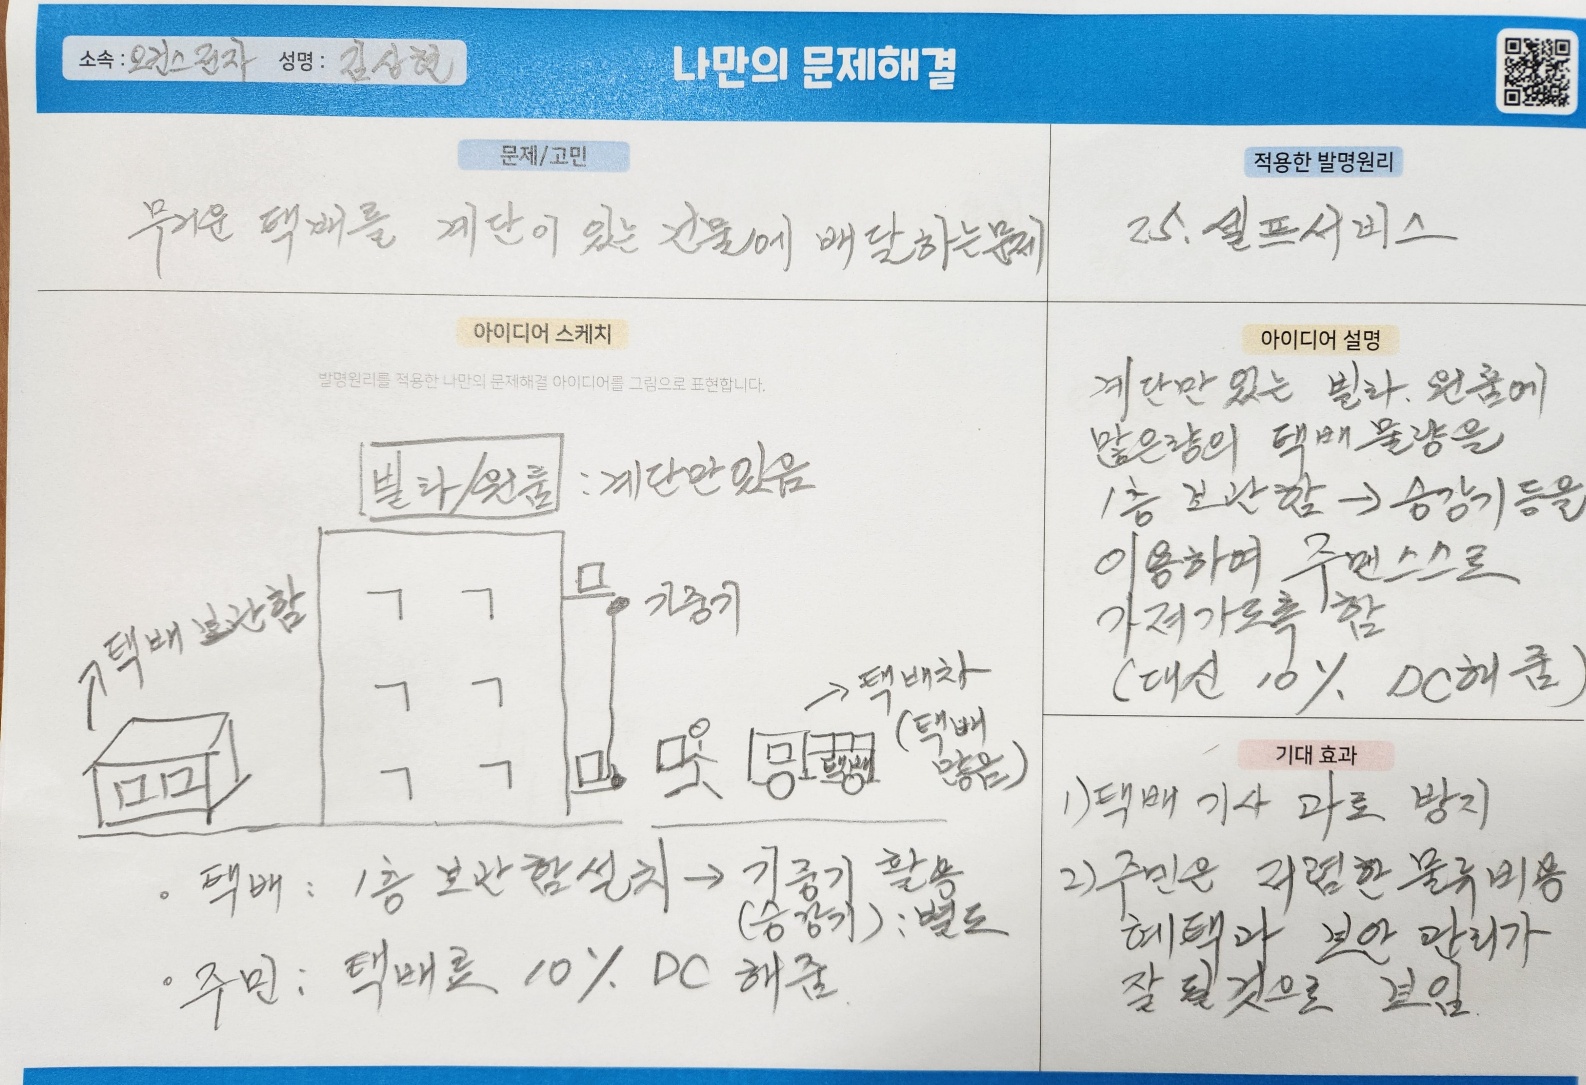 소속 : 오리온스전자 성명 : 김상현
나만의 문제해결
문제/고민
무거운 택배를 계단이 있는 건물에 배달하는 문제
적용한 발명원리
25. 셀프서비스
아이디어 스케치
발명원리를 적용한 나만의 문제해결 아이디어를 그림으로 표현합니다.
빌라/원룸 : 계단만 있음
택배 보관함
기중기
→ 택배차
(택배
많음)
택배
• 택배 : 1층 보관함 설치 → 기중기 활용
(승강기) : 별도
• 주민 : 택배료 10% DC 해줌.
아이디어 설명
계단만 있는 빌라. 원룸에
많은량의 택배 물량을
1층 보관함 → 승강기 등을
이용하며 주민 스스로
가져가도록 함
(대신 10% DC 해줌)
기대 효과
1) 택배 기사 과로 방지
2) 주민은 저렴한 물류비용
혜택과 보안 관리가
잘 될 것으로 보임.